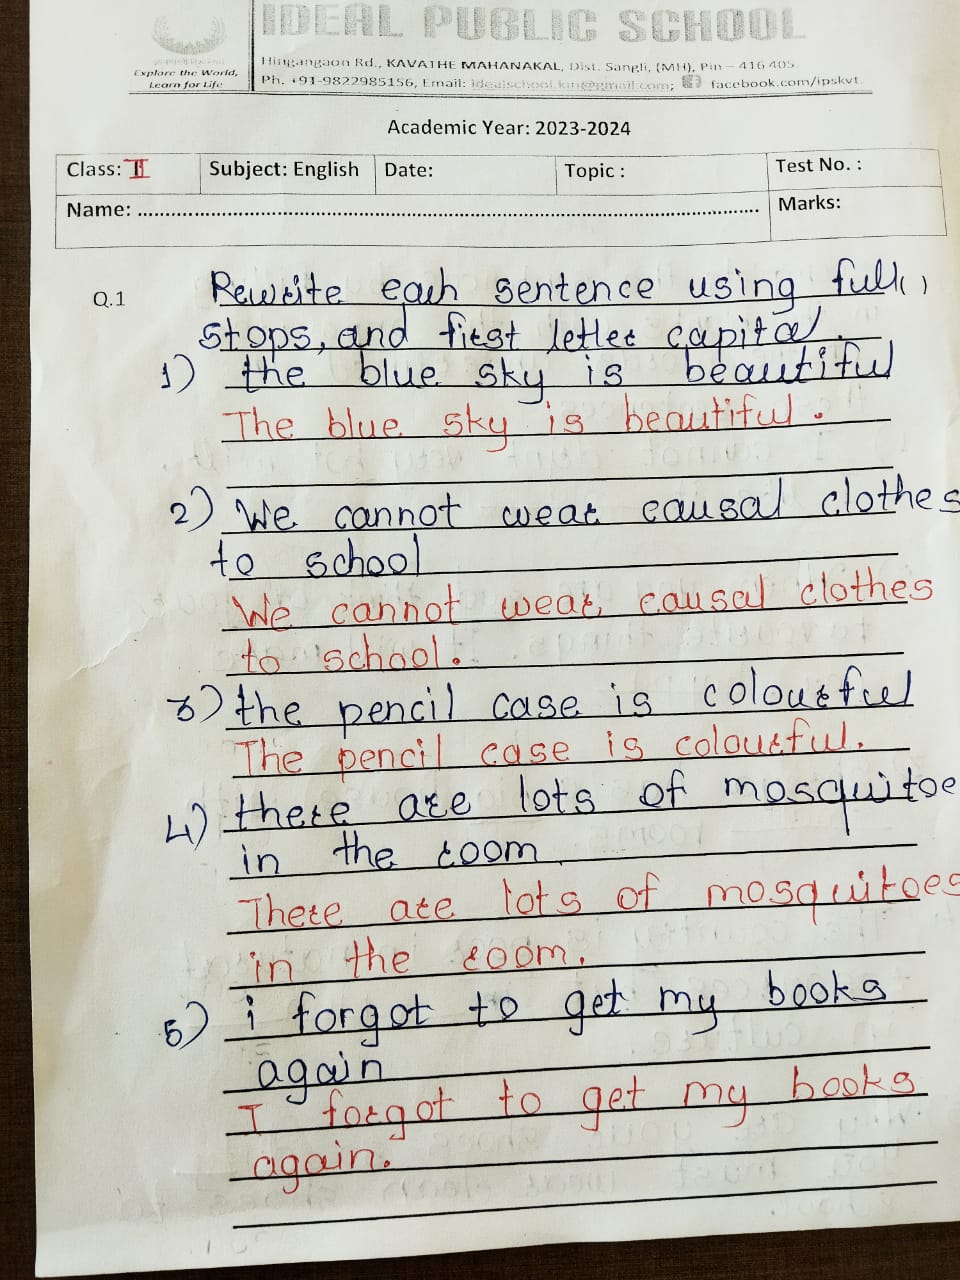 IDEAL PUBLIC SCHOOL
Explore the World,
Learn for Life
Hingangaon Rd., KAVATHE MAHANAKAL, Dist. Sangli, (MH), Pin – 416 405.
Ph. +91-9822985156, Email: idealschool.km@gmail.com; facebook.com/ipskvt.
Academic Year: 2023-2024
Class: II Subject: English Date: Topic : Test No. :
Name: Marks:
Q.1 Rewrite each sentence using full( )
stops, and first letter capital.
1) the blue sky is beautiful
The blue sky is beautiful.
2) We cannot wear causal clothes
to school
We cannot wear causal clothes
to school.
3) the pencil case is colourful
The pencil case is colourful.
4) there are lots of mosquitoe
in the room
There are lots of mosquitoes
in the room.
5) i forgot to get my books
again
I forgot to get my books
again.